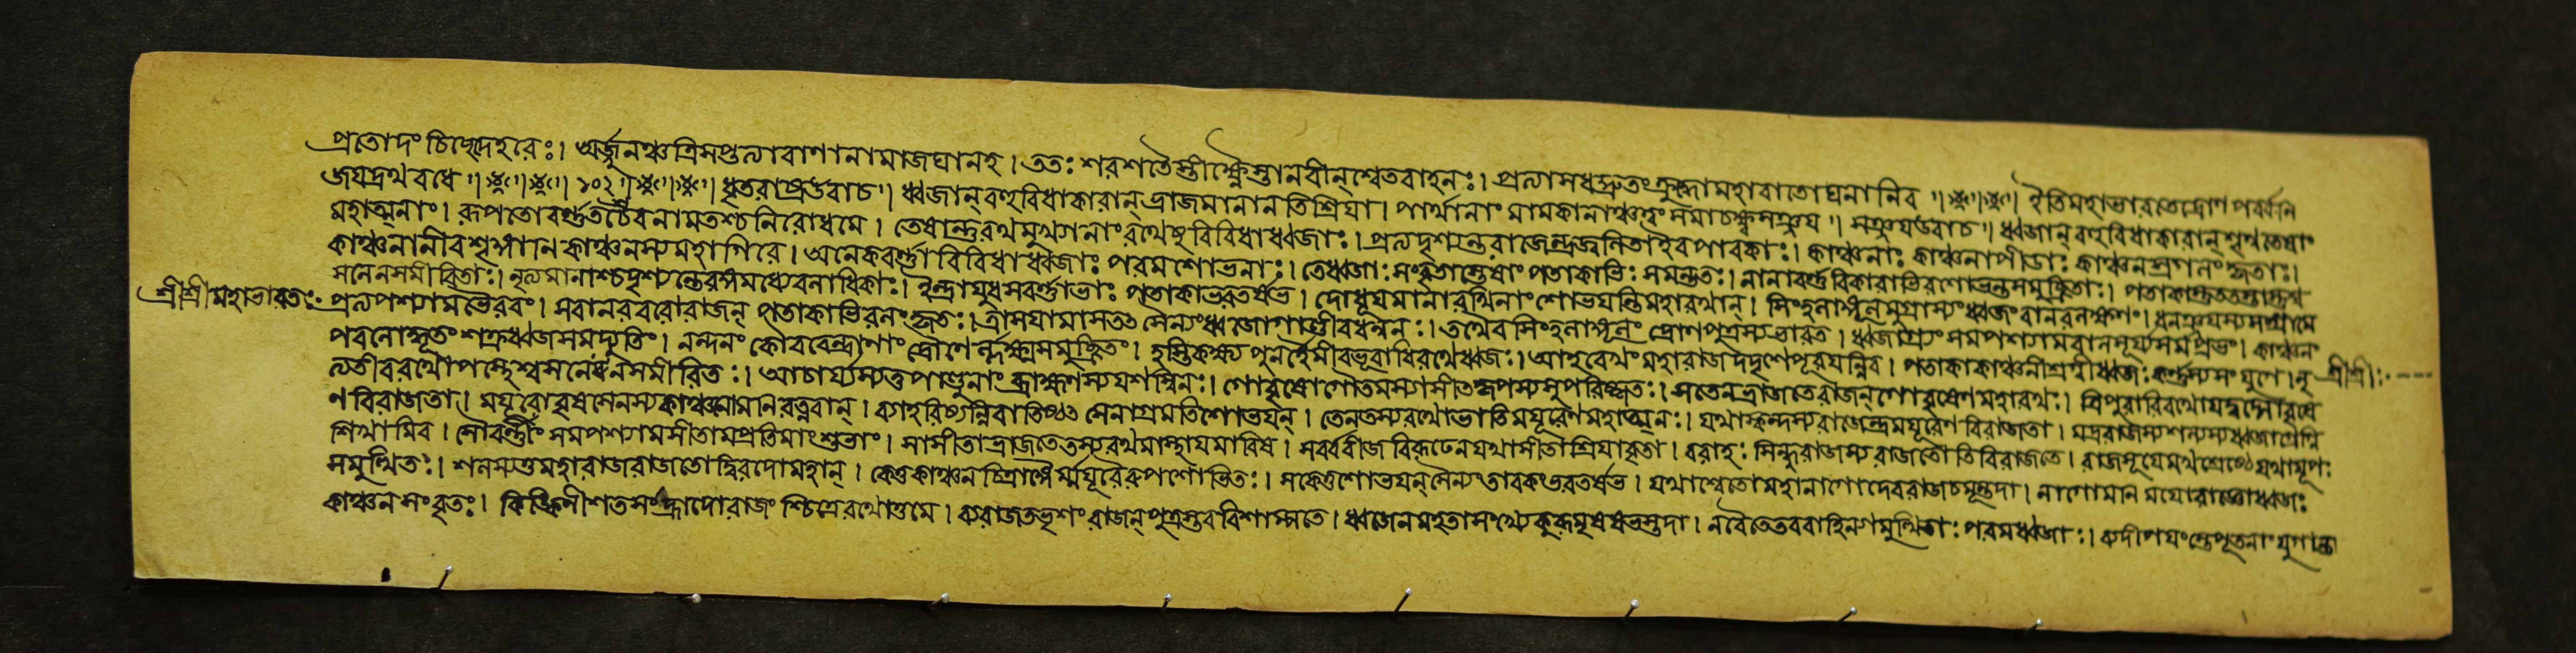 প্রতোদং চিচ্ছেদহরেঃ। অর্জ্জুনঞ্চত্রিসপ্তত্যাবাণানামাজঘানহ। ততঃ শরশতৈস্তীক্ষ্ণৈস্তানবীন্শ্বেতবাহনঃ। প্রত্যাসধদ্দ্রুতংক্রুদ্ধোমহাবাতোঘনানিব ॥ ইতিমহাভারতেদ্রোণপর্ব্বণি
জয়দ্রথবধে ॥ ১০২ ॥ ধৃতরাষ্ট্রউবাচ ॥ ধ্বজান্বহুবিধাকারান্ভ্রাজমানানতিশ্রিয়া। পার্থানাং মামকানাঞ্চতন্মমাচক্ষ্বসঞ্জয় ॥ সঞ্জয়উবাচ ॥ ধ্বজান্বহুবিধাকারান্শৃণুতেষাং
মহাত্মনাং। রূপতোবর্ণতশ্চৈবনামতশ্চনিবোধমে। তেষান্তুরথমুখ্যানাংরথেষুবিবিধাধ্বজাঃ। প্রত্যদৃশ্যন্তরাজেন্দ্রজ্বলিতাইবপাবকাঃ। কাঞ্চনাঃ কাঞ্চনাপীড়াঃ কাঞ্চনস্রগলংকৃতাঃ।
কাঞ্চনানীবশৃঙ্গাণি কাঞ্চনস্যমহাগিরে। অনেকবর্ণাবিবিধাধ্বজাঃ পরমশোভনাঃ। তেধ্বজাঃ সংবৃতাস্তেষাং পতাকাভিঃ সমন্ততঃ। নানাবর্ণবিকারাভিঃশোভন্তসমুচ্ছ্রিতাঃ। পতাকাস্তুততস্তাস্তুশ্ব
সনেনসমীরিতাঃ। নৃত্যমানাশ্চদৃশ্যন্তেরঙ্গমধ্যেবনাধিকাঃ। ইন্দ্রায়ুধসবর্ণাভাঃ পতাকাভরতর্ষভ। দোধূয়মানারথিনাং শোভয়ন্তিমহারথান্। সিংহলাঙ্গূলমুগ্রাস্যংধ্বজংবানরলক্ষণং। ধনঞ্জয়স্যসংগ্রামে
শ্রীশ্রীমহাভারতঃ প্রত্যপশ্যামভৈরবং। সবানরবরোরাজন্ পতাকাভিরলংকৃতঃ। ত্রাসয়ামাসতৎসৈন্যংধ্বজোগাণ্ডীবধন্বনঃ। তথৈবসিংহলাঙ্গূলং দ্রোণপুত্রস্যভারত। ধ্বজাগ্র্যং সমপশ্যামবালসূর্য্যসমপ্রভং। কাঞ্চনং
পবনোদ্ধূতং শক্রধ্বজসমদ্যুতিং। নন্দনং কৌরবেন্দ্রাণাং দ্রৌণের্লক্ষ্মসমুচ্ছ্রিতং। হস্তিকক্ষ্যাপুনর্হৈমীবভূবাধিরথের্ধ্বজঃ। আহবেখংমহারাজদদৃশেপূরয়ন্নিব। পতাকাকাঞ্চনীস্রগ্বীধ্বজঃকর্ণস্যসংযুগে। নৃ শ্রীশ্রীঃ
ত্যতীবরথোপস্থেশ্বসনেনসমীরিতঃ। আচার্য্যস্যতুপাণ্ডুনাং ব্রাহ্মণস্যযশস্বিনঃ। গোবৃষোগৌতমস্যাসীতকৃপস্যসুপরিষ্কৃতঃ। সতেনভ্রাজতেরাজন্গোবৃষেণমহারথঃ। ত্রিপুরারিরথোযদ্বদ্গোবৃষে
ণবিরাজতা। ময়ূরোবৃষসেনস্যকাঞ্চনোমণিরত্নবান্। ব্যাহরিষ্যন্নিবাতিষ্ঠৎ সেনাগ্রমতিশোভয়ন্। তেনতস্যরথোভাতিময়ূরেণমহাত্মনঃ। যথাস্কন্দস্যরাজেন্দ্রময়ূরেণবিরাজতা। মদ্ররাজস্যশল্যস্যধ্বজাগ্রেগ্নি
শিখামিব। সৌবর্ণীং সমপশ্যামসীতামপ্রতিমাংশুভাং। সাসীতাভ্রাজতেতস্যরথমাস্থায়মারিষ। সর্ব্ববীজবিরূঢেনযথাসীতাশ্রিয়াবৃতা। বরাহঃ সিন্ধুরাজস্যরাজতোতিবিরাজতে। রাজসূয়েমখশ্রেষ্ঠেযথাযূপঃ
সমুত্থিতঃ। শলস্যতুমহারাজরাজতোদ্বিরদোমহান্। কেতুকাঞ্চনচিত্রাঙ্গৈর্ম্ময়ূরৈরুপশোভিতঃ। সকেতুশোভয়ন্সৈন্যংতাবকংভরতর্ষভ। যথাশ্বেতোমহানাগোদেবরাজচমূন্তদা। নাগোমণিময়োরাজ্ঞোধ্বজঃ
কাঞ্চনসংবৃতঃ। কিঙ্কিণীশতসংহ্রাদোরাজংশ্চিত্রেরথোত্তমে। ব্যরাজতভৃশংরাজন্পুত্রস্তববিশাম্পতে। ধ্বজেনমহতাসংখ্যেকুরূণামৃষভস্তদা। নবৈতেতববাহিন্যামুত্থিতাঃ পরমধ্বজাঃ। ব্যদীপয়ংস্তেপৃতনাংযুগান্তা